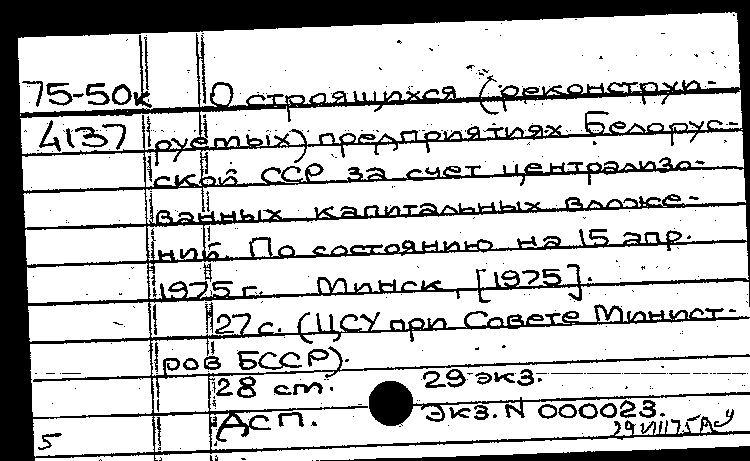 75-50к О строящихся (реконструи-
4137 руемых) предприятиях Белорус-
ской ССР за счет централизо-
ванных капитальных вложе-
ний. По состоянию на 15 апр.
1975 г. Минск, [1975].
27 с. (ЦСУ при Совете Минист-
ров БССР).
28 ст. 29 экз.
Дсп. Экз. N 000023.
5